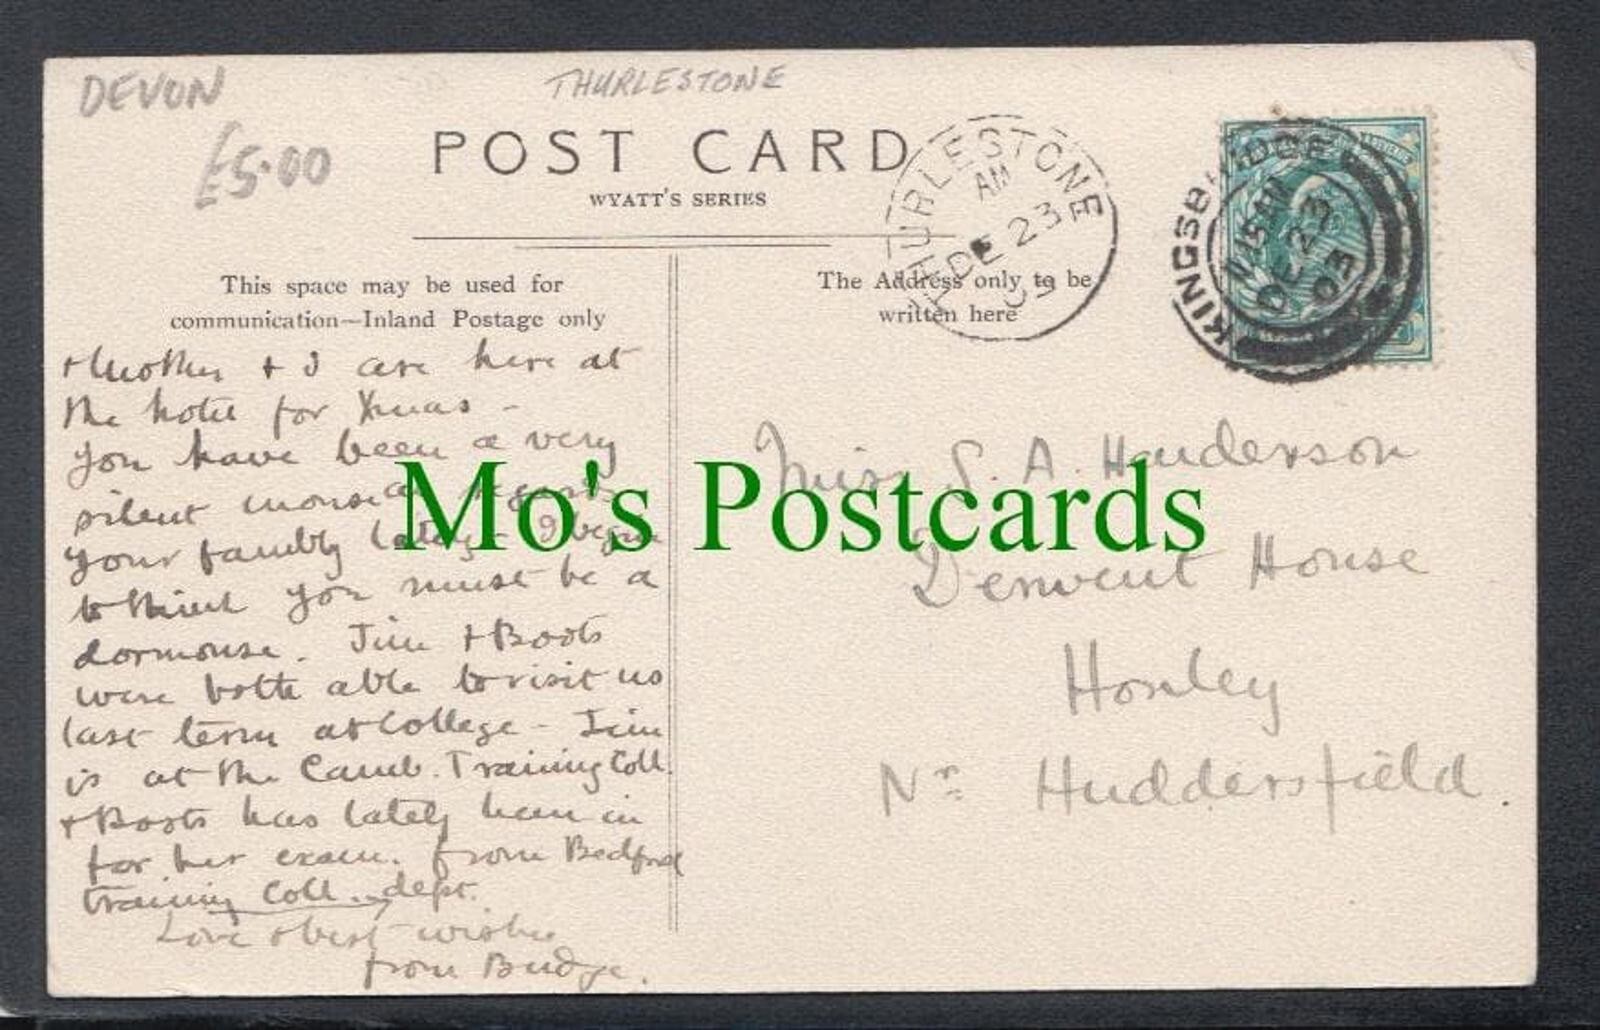 DEVON
THURLESTONE
£5.00
POST CARD
WYATT'S SERIES
THURLESTONE
AM
DE 23
KINGSBRIDGE
DE 23
03
This space may be used for
communication—Inland Postage only
The Address only to be
written here
+ Mother + I are here at
the hotel for Xmas -
you have been a very
silent mouse as regards
your family lately - I begin
to think you must be a
dormouse. Jim + Boots
were both able to visit us
last term at College - Jim
is at the Camb. Training Coll.
+ Boots has lately been in
for her exam. from Bedford
training Coll. dept.
Love + best wishes
from Budge.
Miss S. A. Henderson
Derwent House
Honley
Nr Huddersfield.
Mo's Postcards